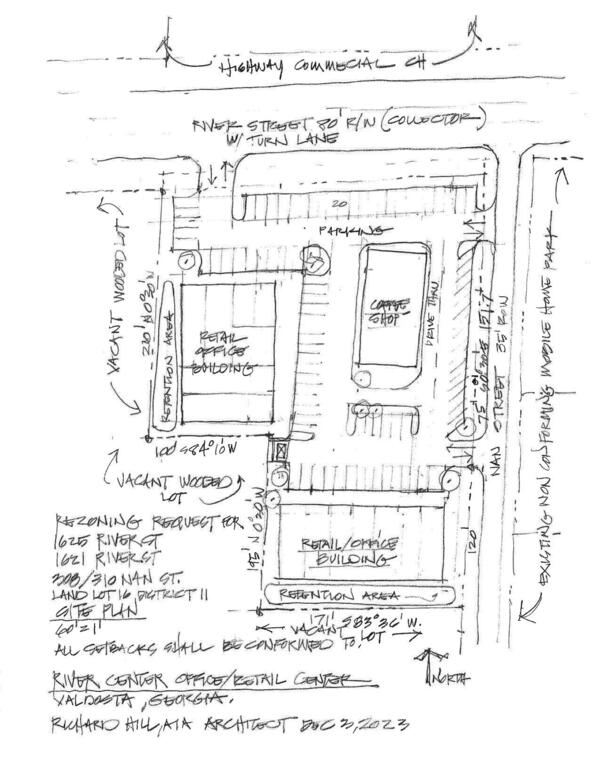 HIGHWAY COMMECIAL CH
RIVER STREET 80' R/W (COLLECTOR)
W/ TURN LANE
20
PARKING
VACANT WOODED LOT
210' N 0°30' W
RETENTION AREA
RETAIL
OFFICE
BUILDING
COFFEE
SHOP
DRIVE THRU
NAN STREET 35' ROW
EXISTING NON CONFORMING MOBILE HOME PARK
100' S84°10'W
VACANT WOODED
LOT
195' N 0°20' W
RETAIL/OFFICE
BUILDING
120'
RETENTION AREA
171' S83°36' W.
VACANT
LOT
REZONING REQUEST FOR
1625 RIVER ST
1621 RIVER ST
308/310 NAN ST.
LAND LOT 16, DISTRICT 11
SITE PLAN
60'=1'
ALL SETBACKS SHALL BE CONFORMED TO.
NORTH
RIVER CENTER OFFICE/RETAIL CENTER
VALDOSTA, GEORGIA.
RICHARD HILL, AIA ARCHITECT DEC 3, 2023